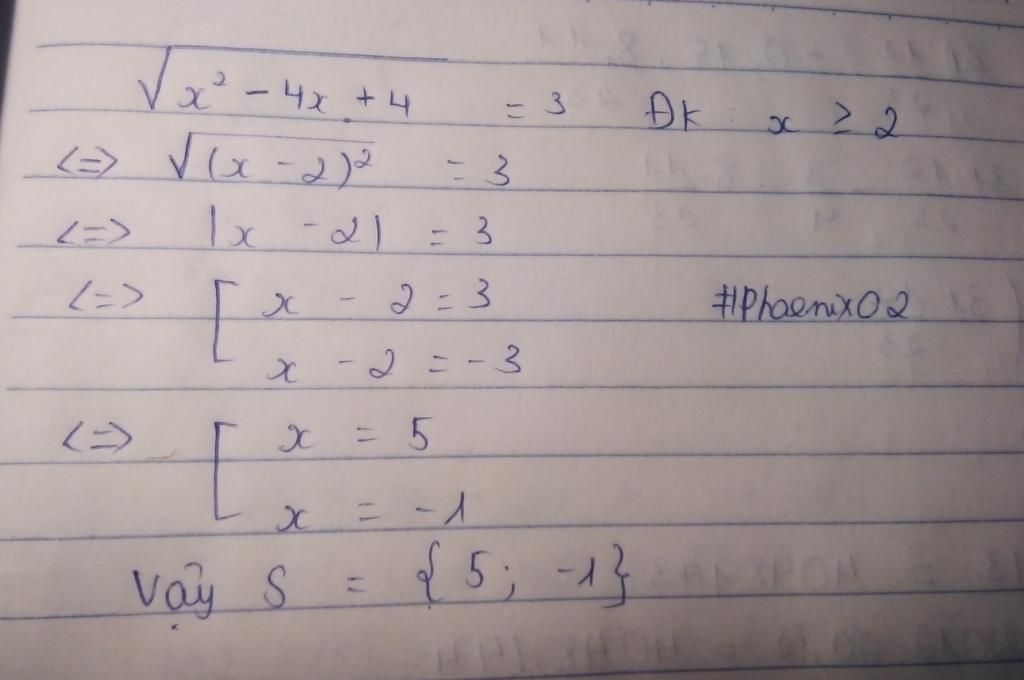 √(x² - 4x + 4) = 3 ĐK : x ≥ 2
<=> √(x - 2)² = 3
<=> |x - 2| = 3
<=> [ x - 2 = 3
x - 2 = -3
#Phoenix02
<=> [ x = 5
x = -1
Vậy S = {5; -1}